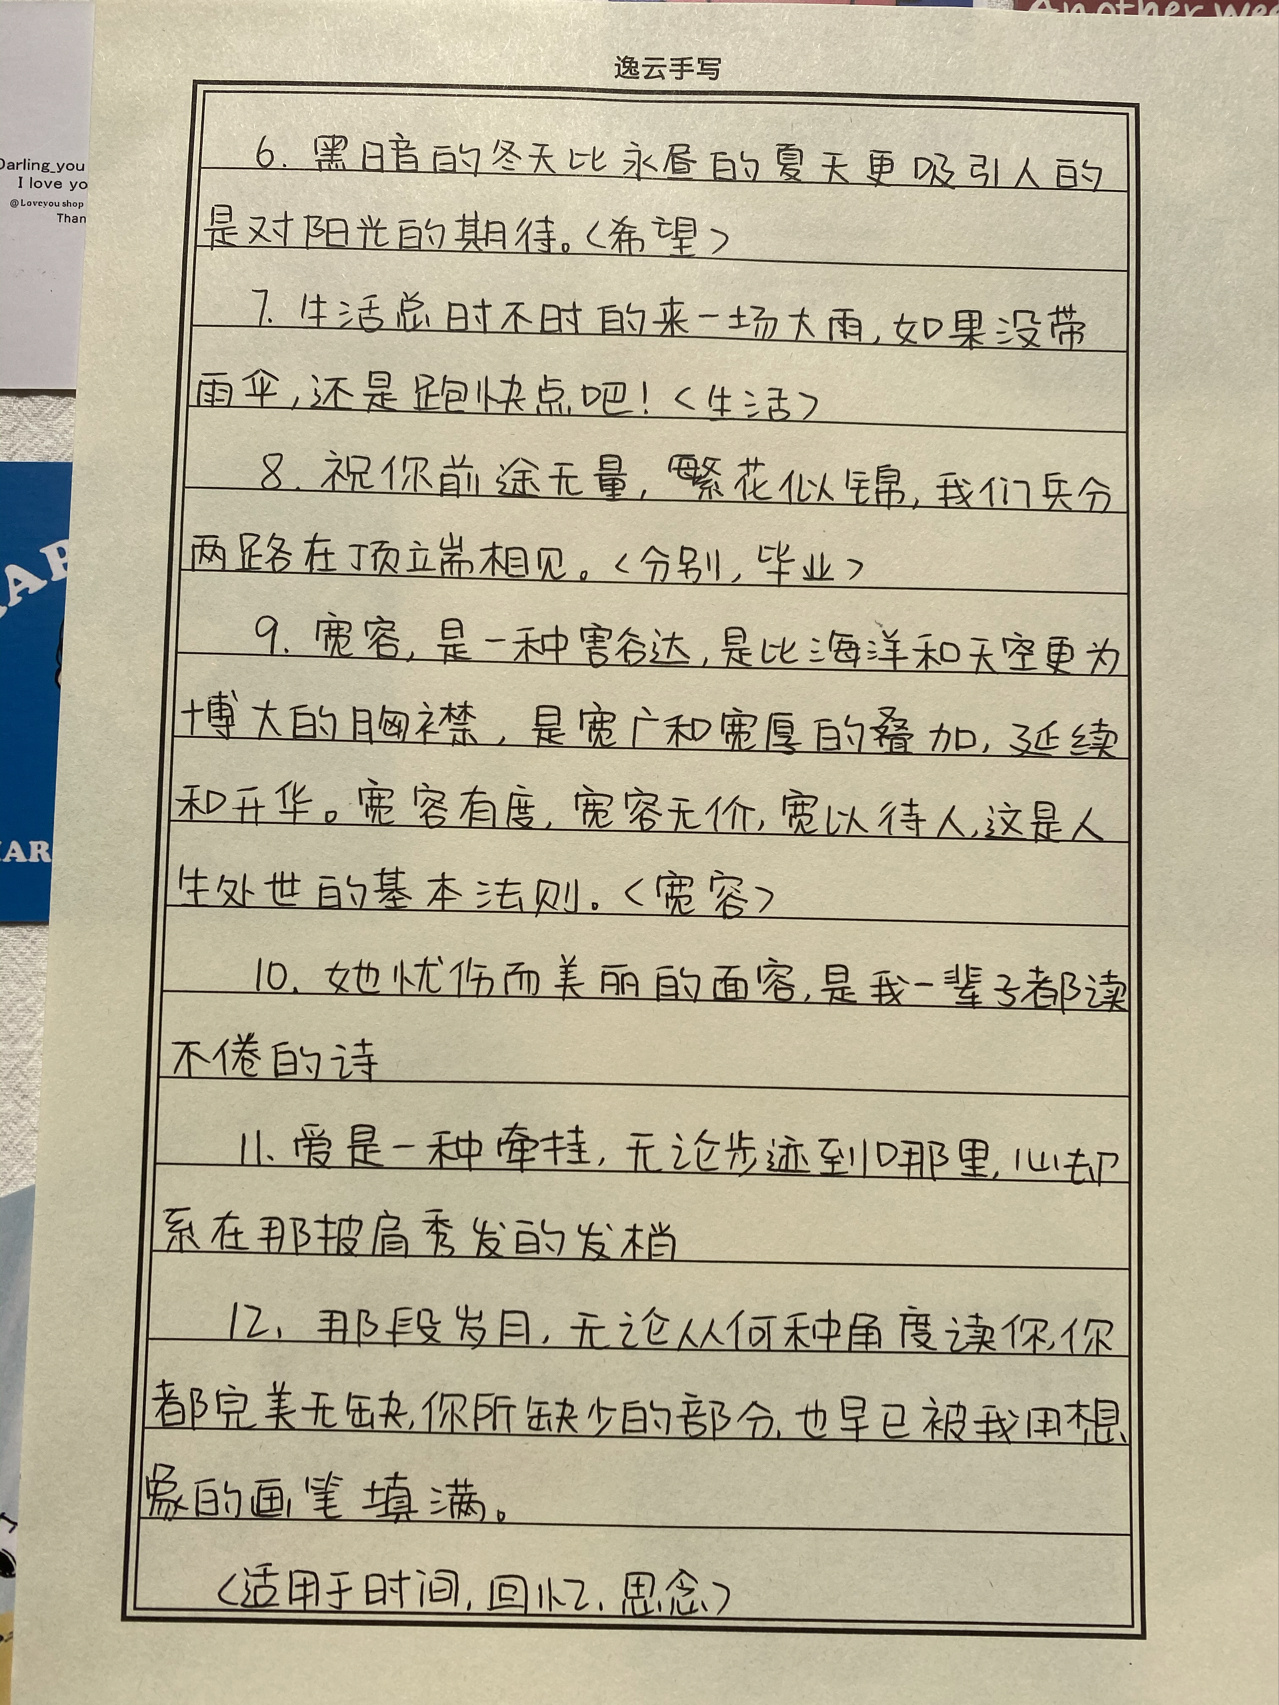 Another wee
Darling_you
I love yo
@Loveyou shop
Than
AP
AR
逸云手写
6. 黑暗的冬天比永昼的夏天更吸引人的
是对阳光的期待。〈希望〉
7. 生活总时不时的来一场大雨,如果没带
雨伞,还是跑快点吧!〈生活〉
8. 祝你前途无量,繁花似锦,我们兵分
两路在顶立端相见。〈分别,毕业〉
9. 宽容,是一种害谷达,是比海洋和天空更为
博大的胸襟,是宽广和宽厚的叠加,延续
和升华。宽容有度,宽容无价,宽以待人,这是人
生处世的基本法则。〈宽容〉
10. 她忧伤而美丽的面容,是我一辈子都读
不倦的诗
11. 爱是一种牵挂,无论步迹到哪里,心却
系在那披肩秀发的发梢
12. 那段岁月,无论从何种角度读你,你
都完美无缺,你所缺少的部分,也早已被我用想
象的画笔填满。
〈适用于时间,回忆,思念〉